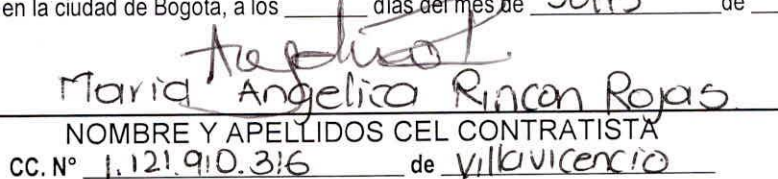 en la ciudad de Bogotá, a los ______ días del mes de ______ de __
Maria Angelica Rincon Rojas
NOMBRE Y APELLIDOS CEL CONTRATISTA
CC. N° 1.121.910.316 de Villavicencio